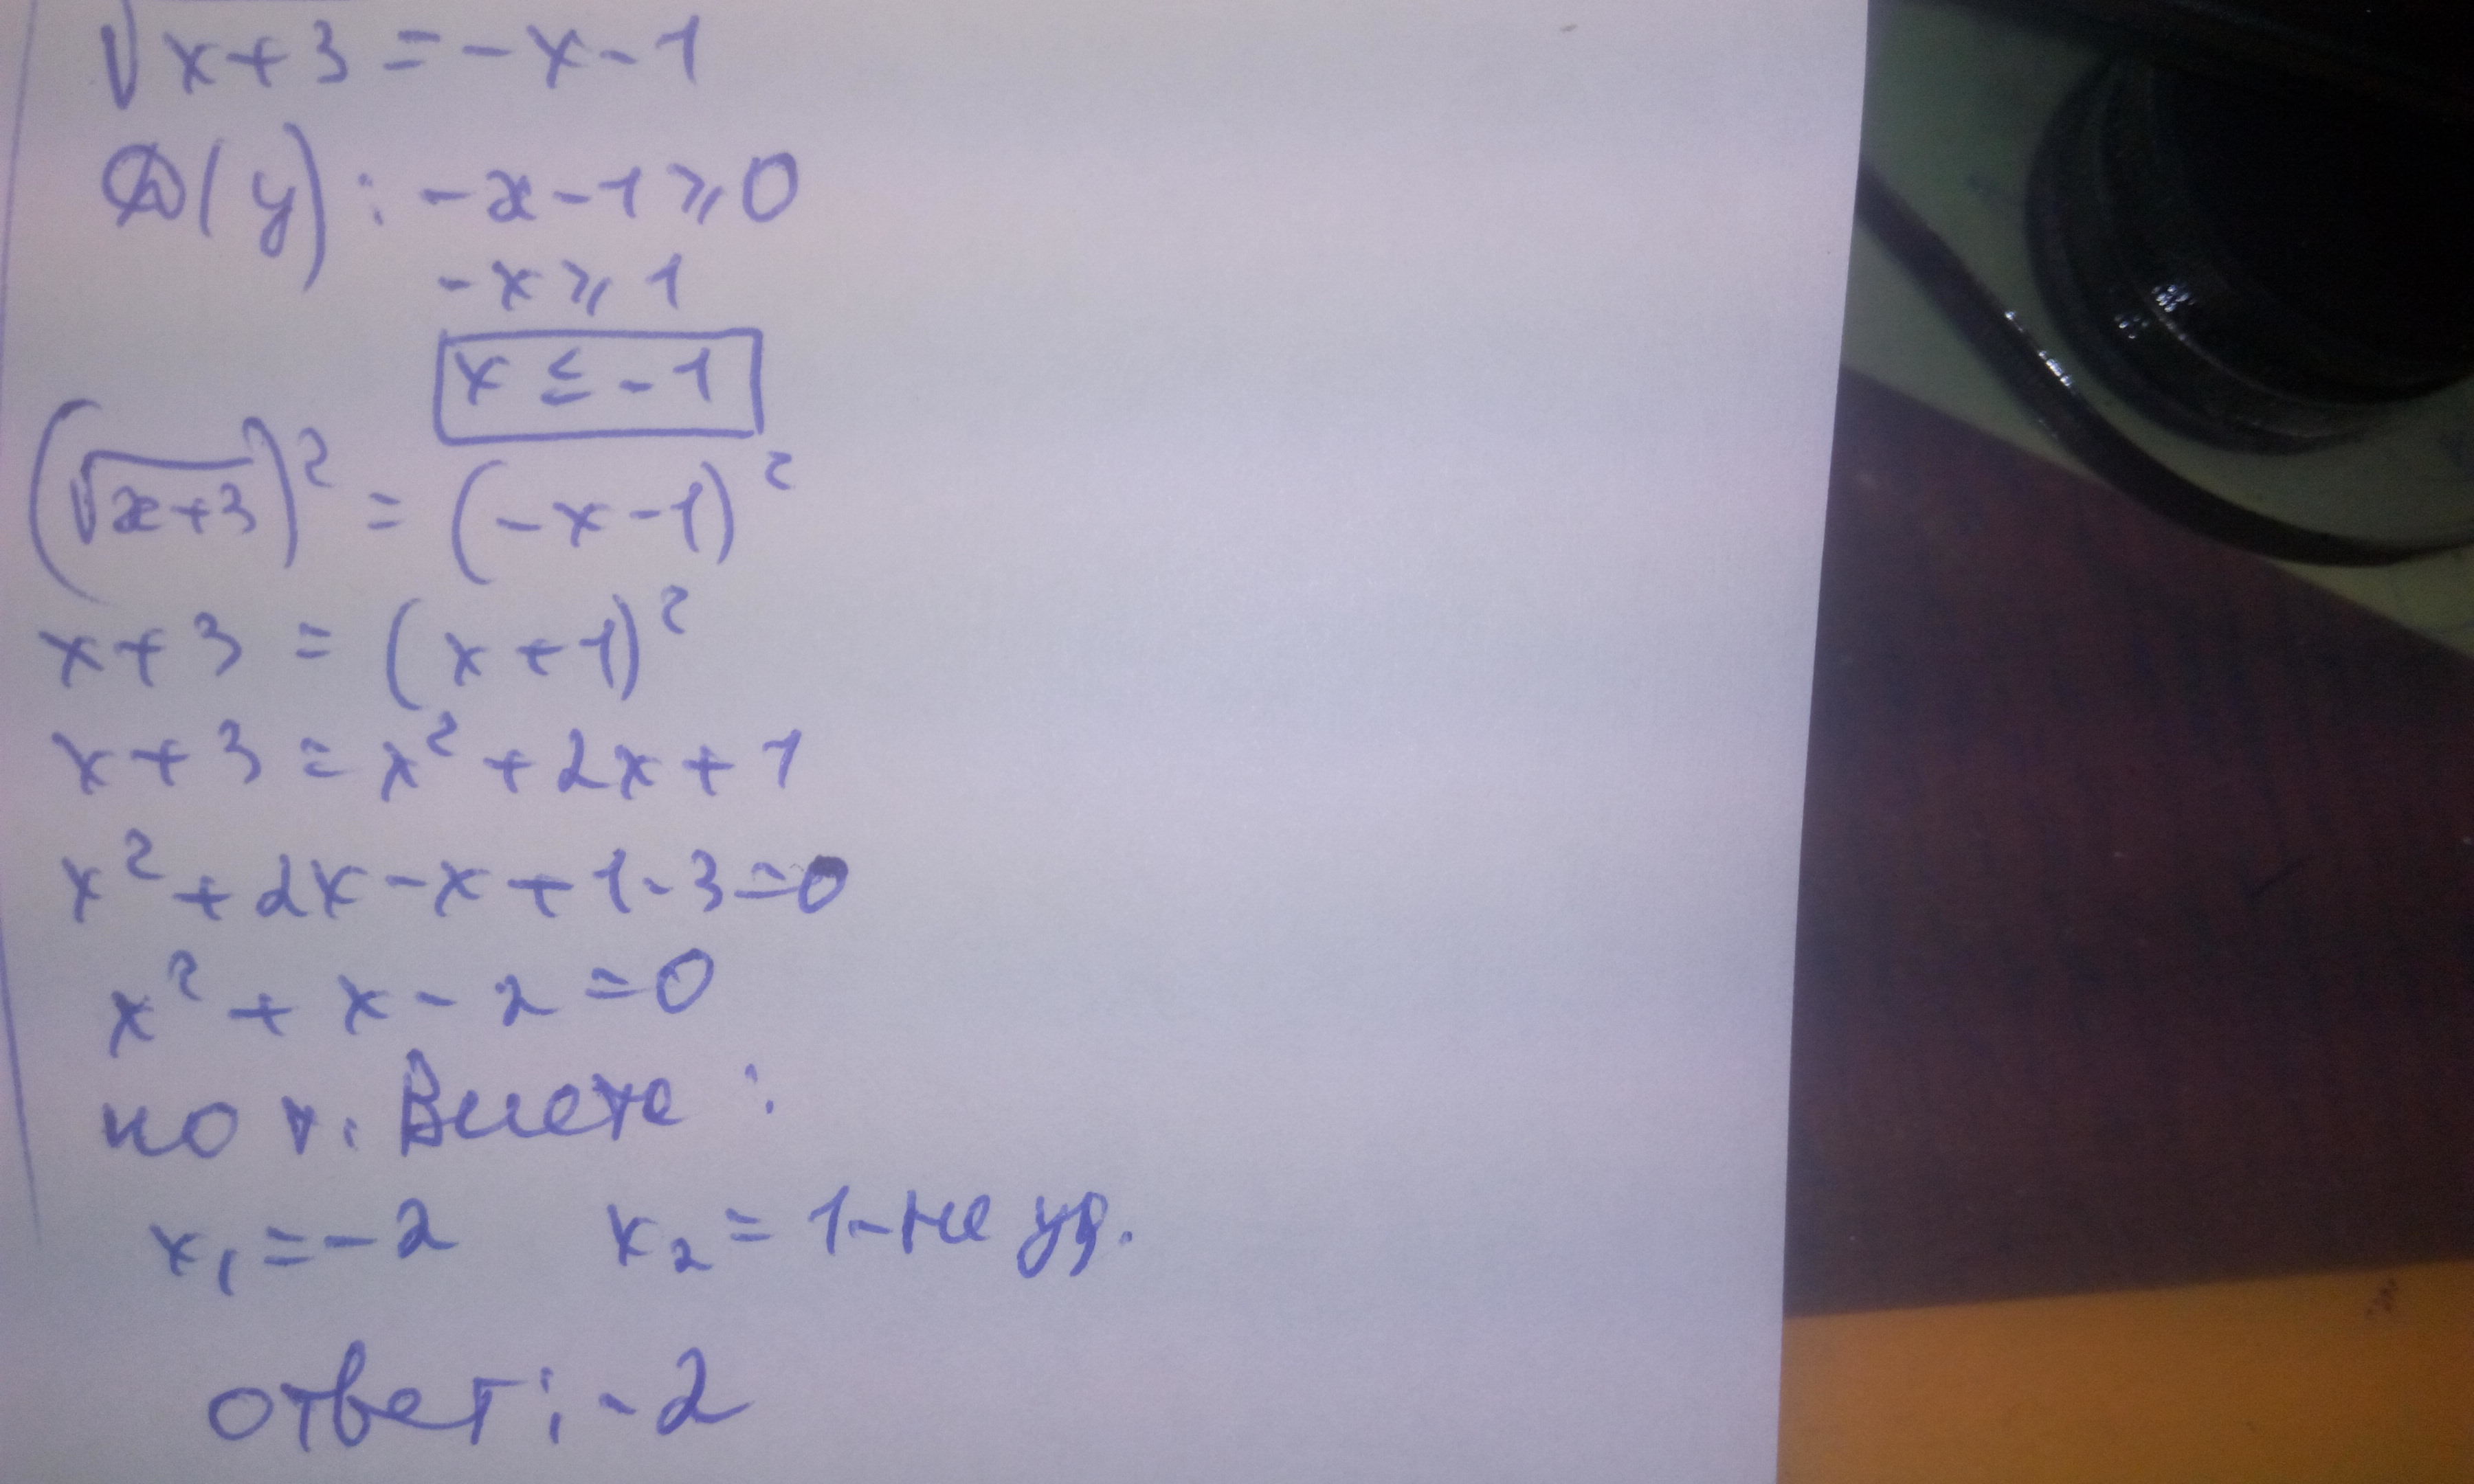 √x+3 = -x-1
D(y): -x-1⩾0
-x⩾1
x ≤ -1
(√x+3)² = (-x-1)²
x+3 = (x+1)²
x+3 = x²+2x+1
x²+2x-x+1-3=0
x²+x-2=0
по т. Виета:
x₁=-2 x₂=1-не уд.
ответ: -2